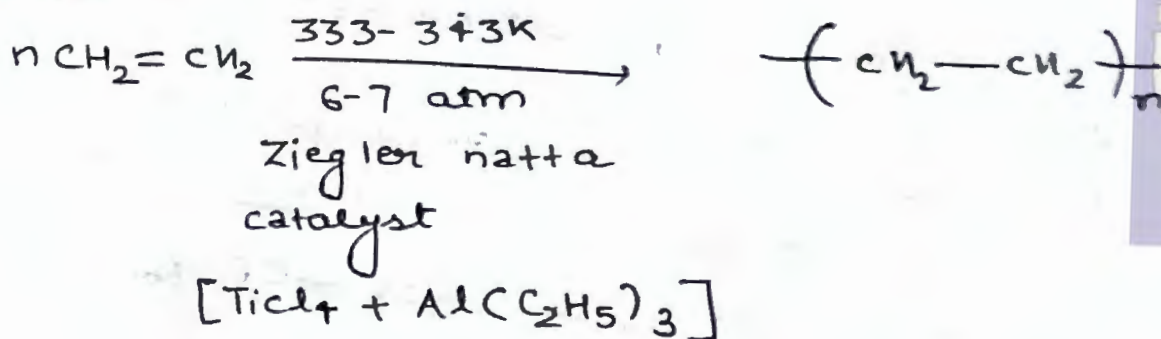 nCH₂=CH₂ 333-343K —( CH₂—CH₂ )—n
6-7 atm
Ziegler natta
catalyst
[TiCl₄ + Al(C₂H₅)₃]